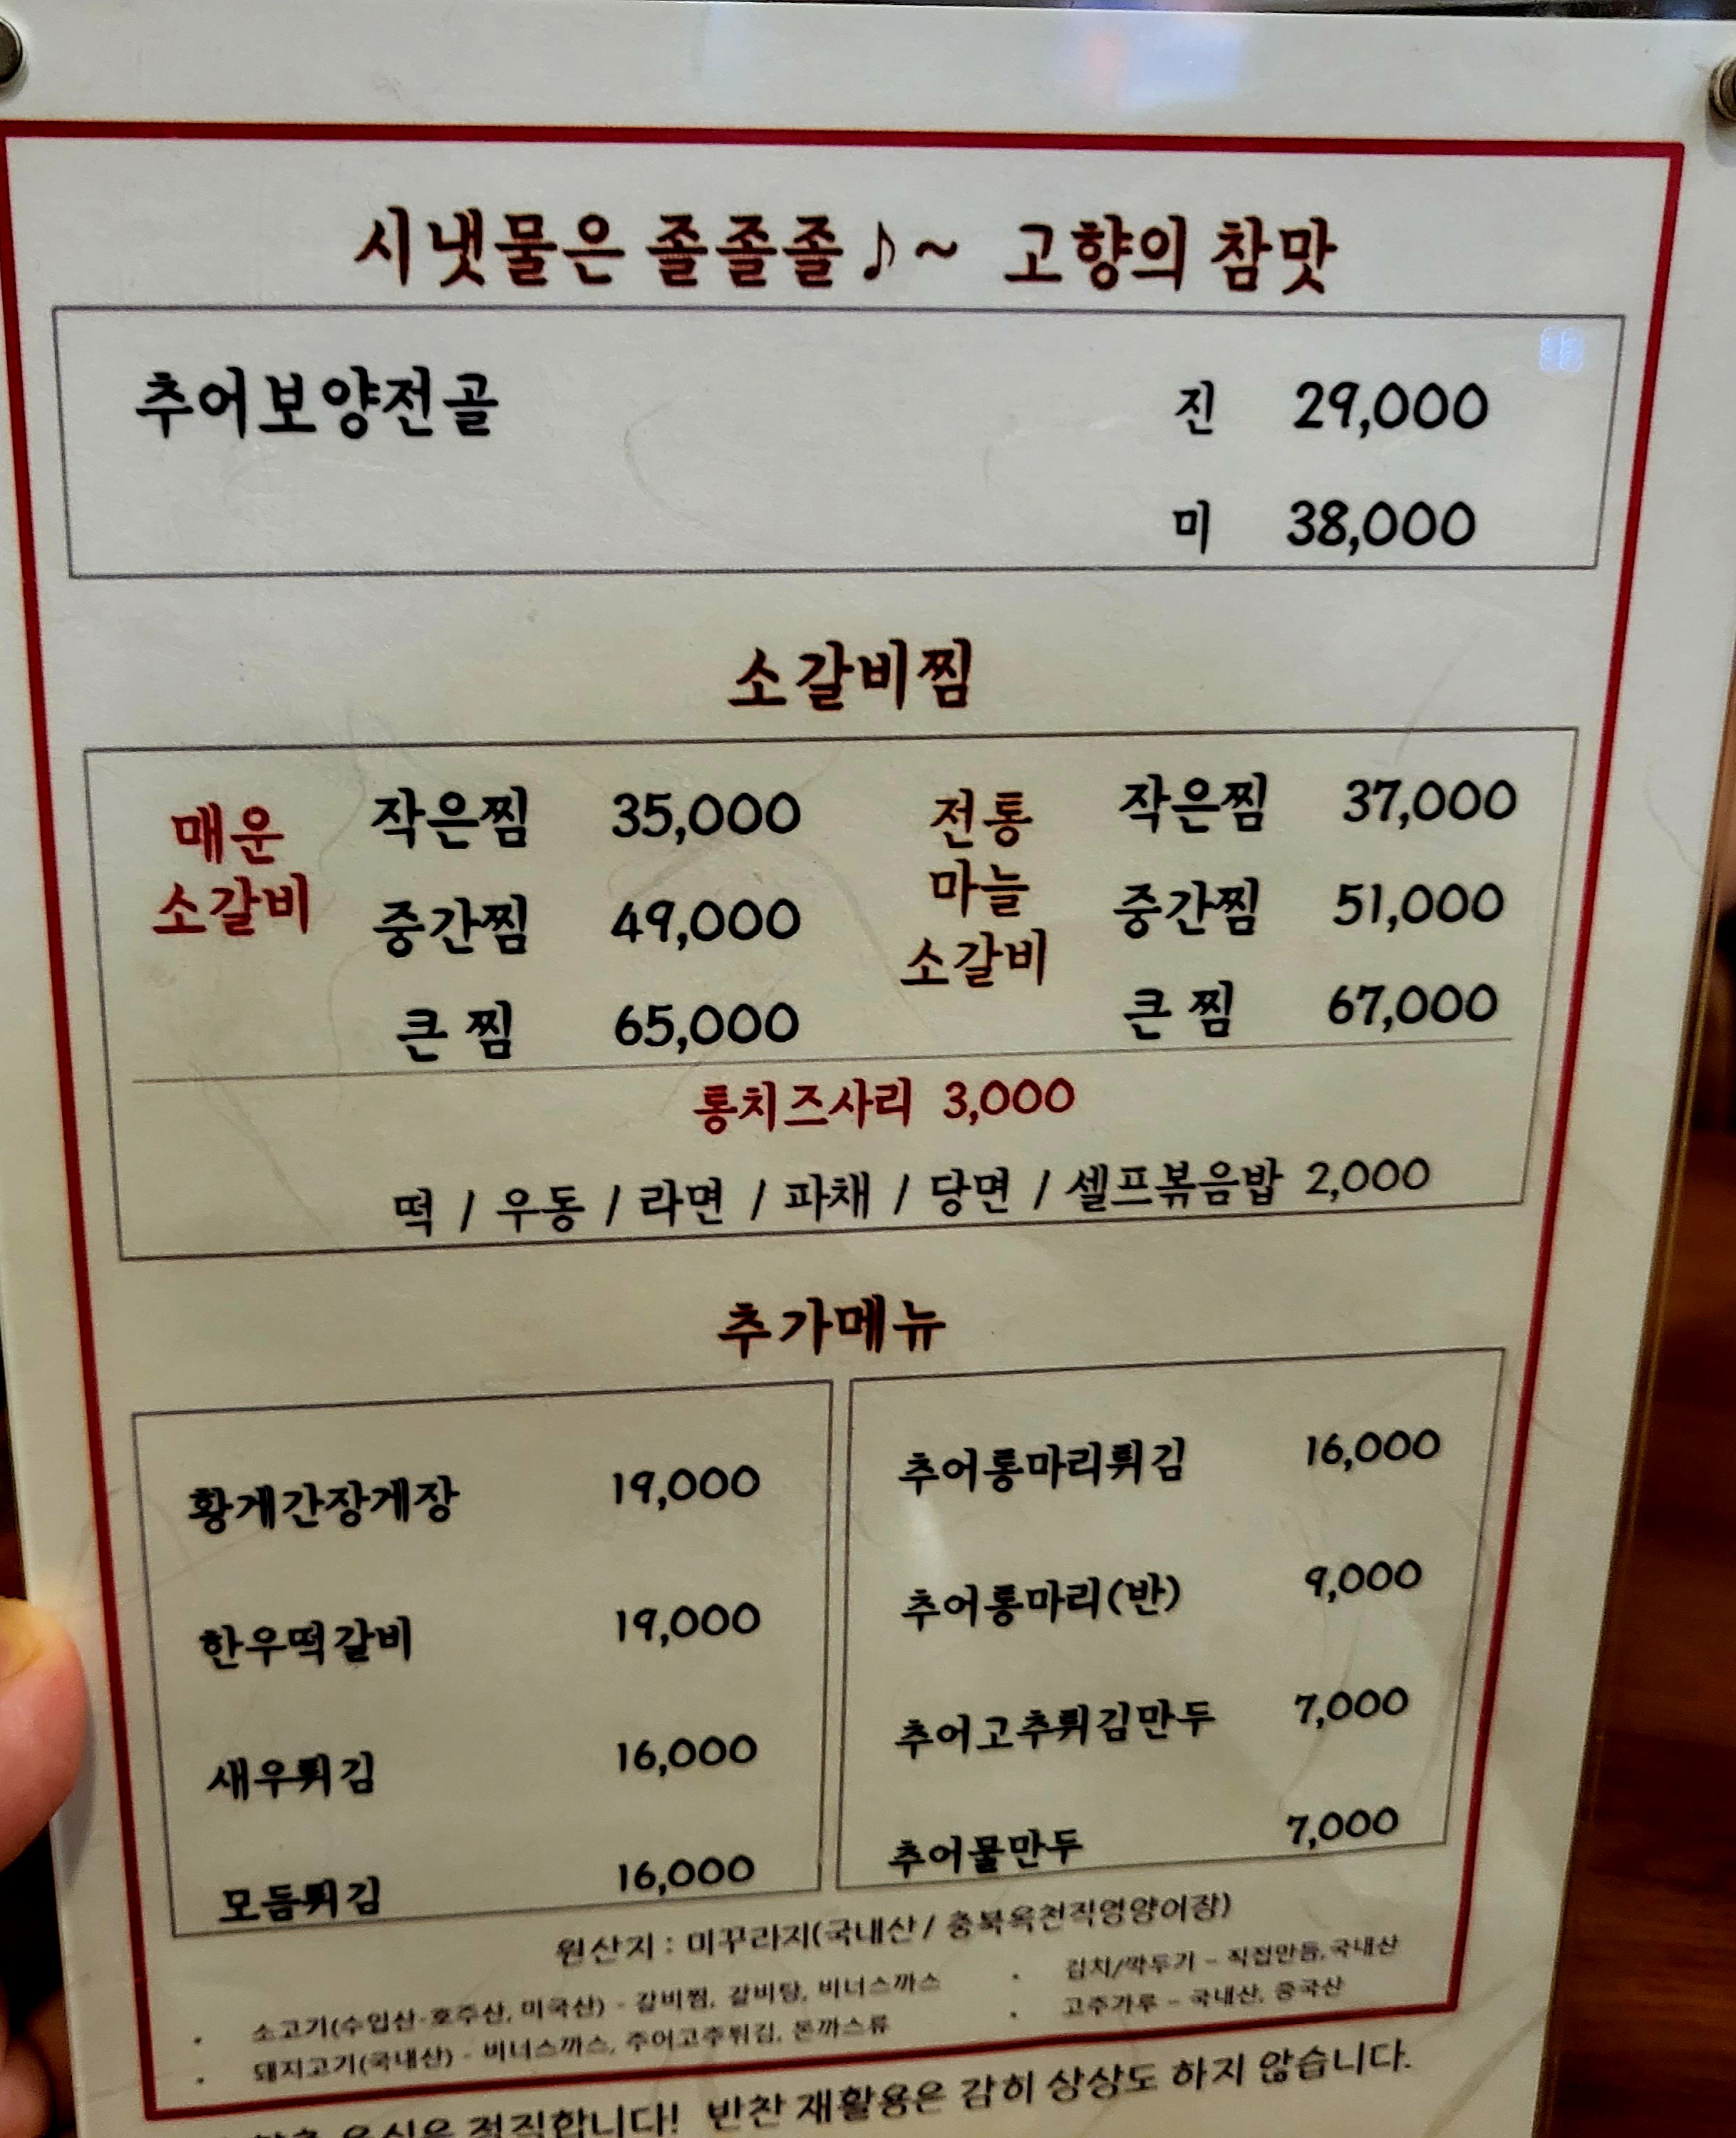 시냇물은 졸졸졸♪~ 고향의 참맛
추어보양전골 진 29,000
미 38,000
소갈비찜
매운 소갈비
작은찜 35,000
중간찜 49,000
큰 찜 65,000
전통 마늘 소갈비
작은찜 37,000
중간찜 51,000
큰 찜 67,000
통치즈사리 3,000
떡 / 우동 / 라면 / 파채 / 당면 / 셀프볶음밥 2,000
추가메뉴
황게간장게장 19,000
한우떡갈비 19,000
새우튀김 16,000
모듬튀김 16,000
추어통마리튀김 16,000
추어통마리(반) 9,000
추어고추튀김만두 7,000
추어물만두 7,000
원산지 : 미꾸라지(국내산 / 충북옥천직영양어장)
• 소고기(수입산-호주산, 미국산) - 갈비찜, 갈비탕, 비너스까스
• 돼지고기(국내산) - 비너스까스, 추어고추튀김, 돈까스류
• 김치/깍두기 - 직접만듬, 국내산
• 고추가루 - 국내산, 중국산
음식은 정직합니다! 반찬 재활용은 감히 상상도 하지 않습니다.